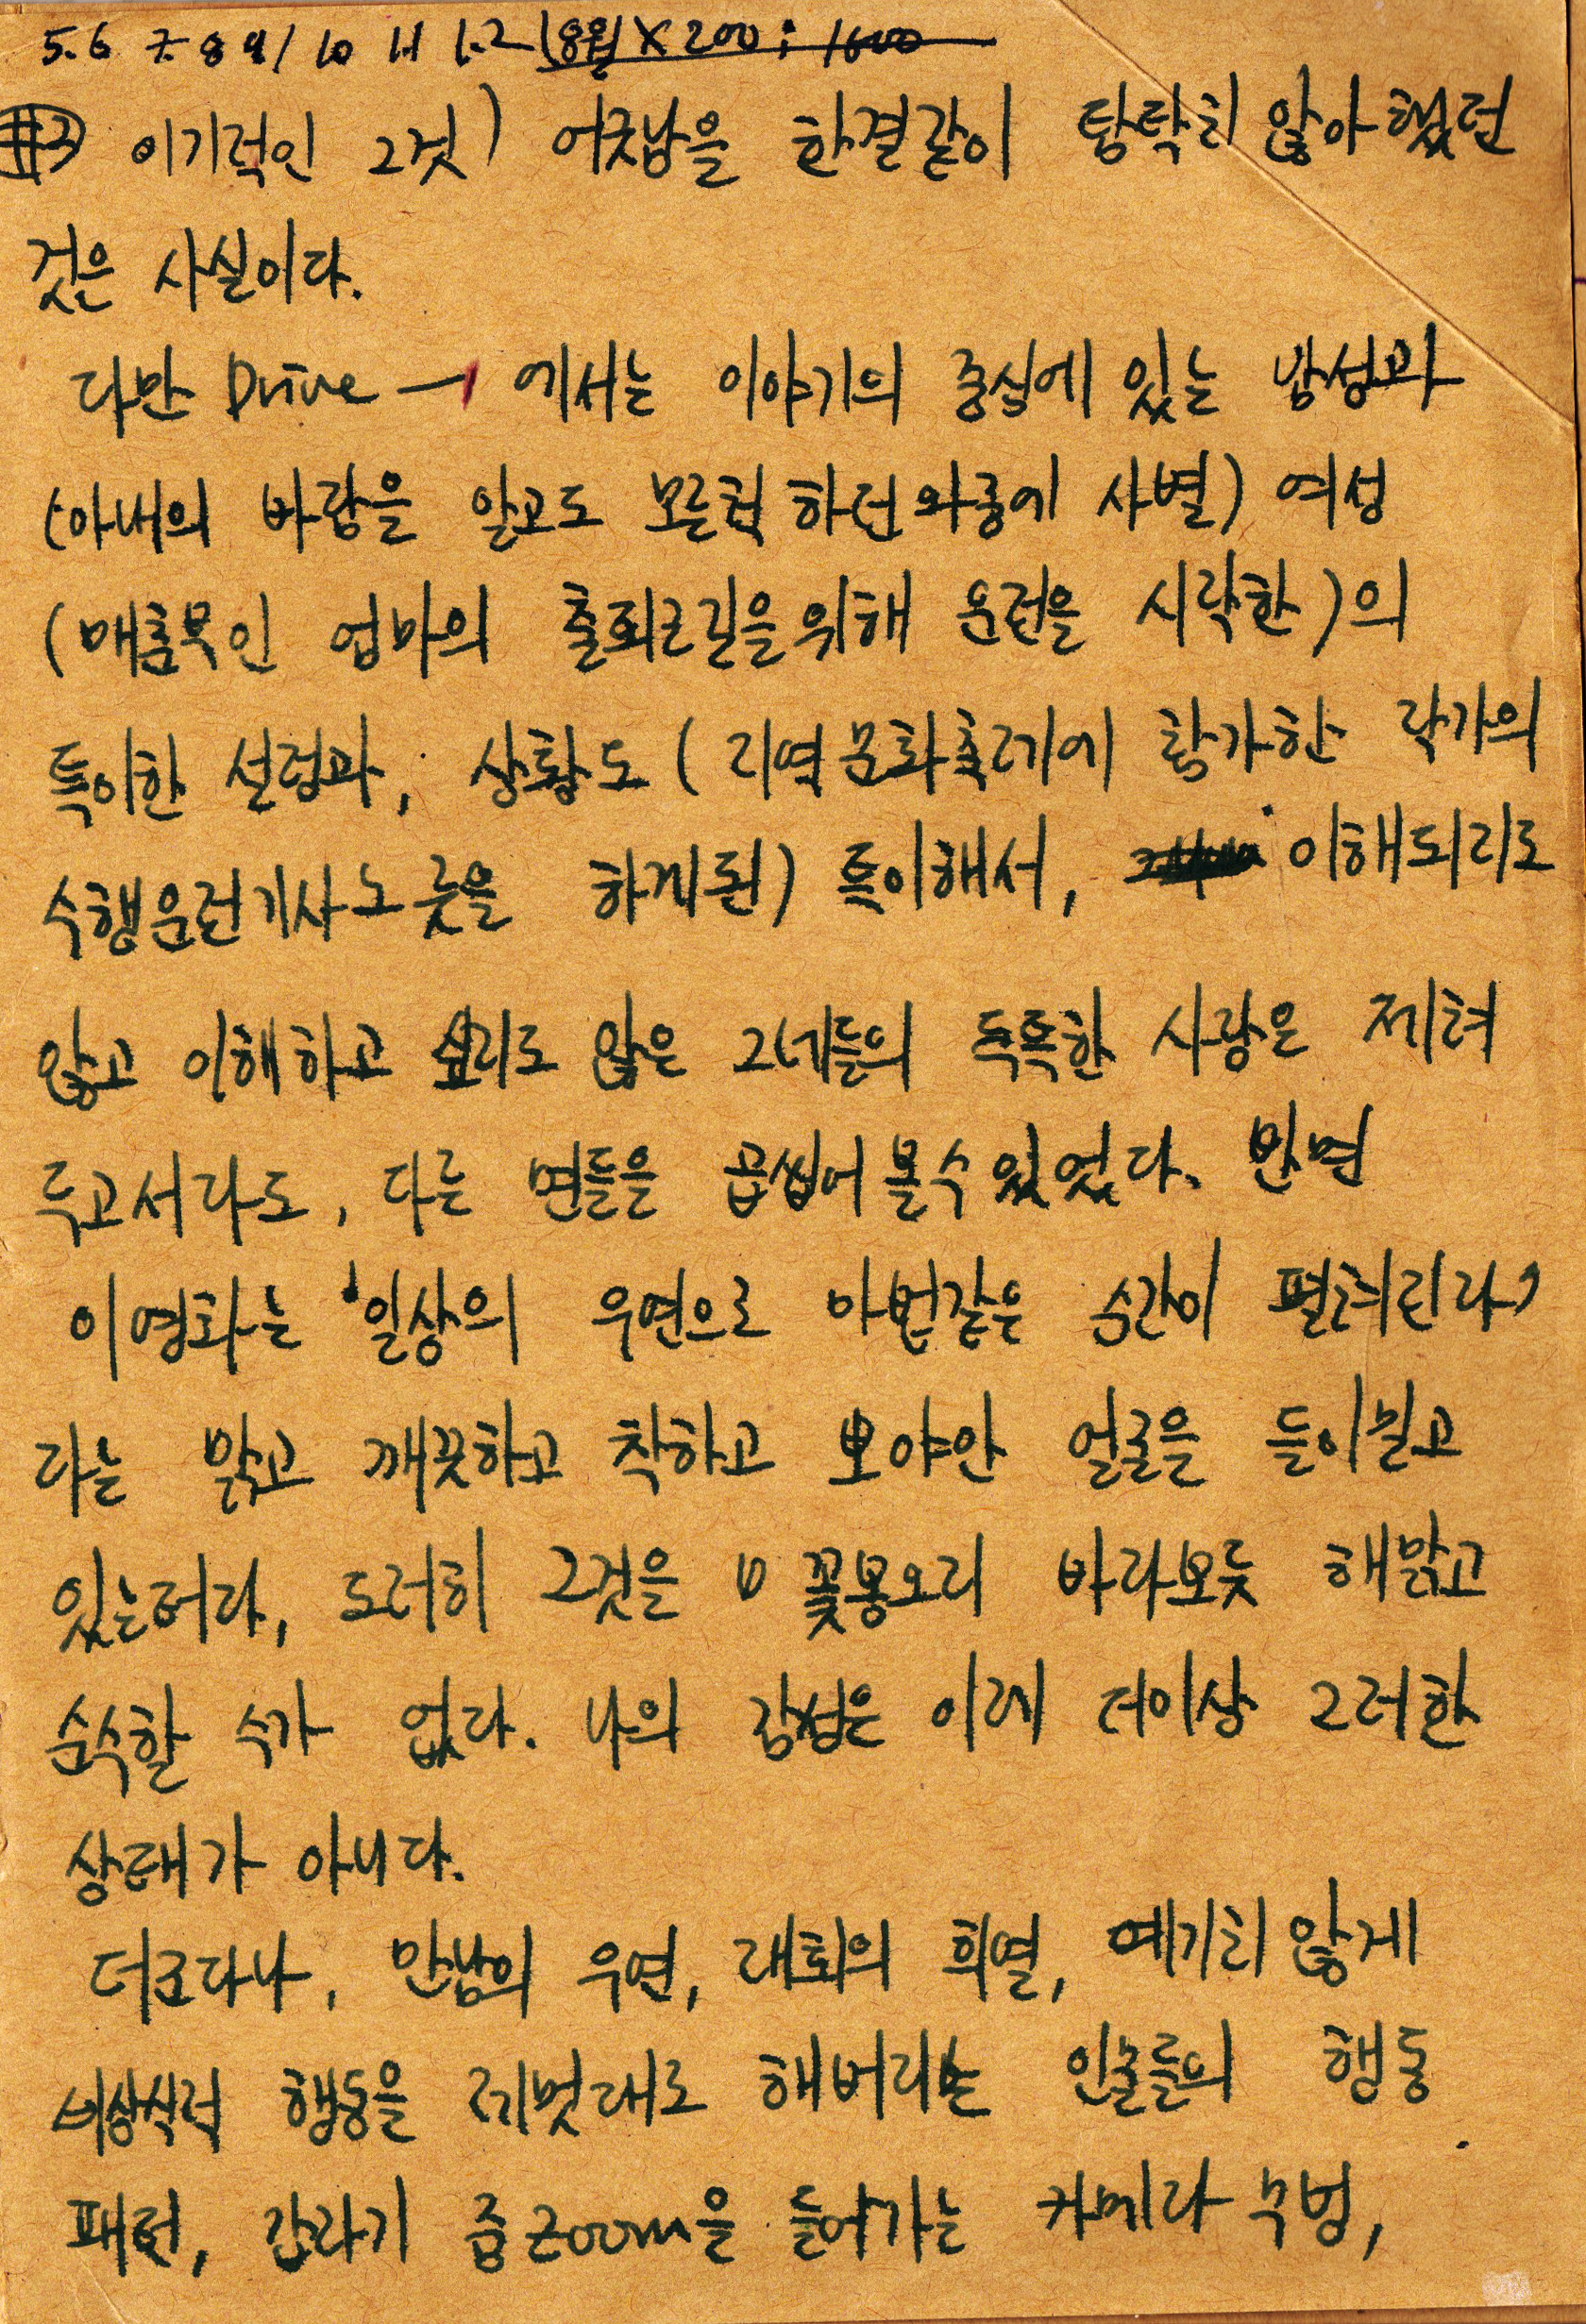 5.6 7.8 9/ 10 11 12 (8월 X 200 : 1600
#3 이기적인 그것) 어긋남을 한결같이 탐탁치 않아 했던
것은 사실이다.
다만 Drive — 에서는 이야기의 중심에 있는 남성과
(아내의 바람을 알고도 모른척 하던 와중에 사별) 여성
(매춘부인 엄마의 출퇴근길을 위해 운전을 시작한)의
특이한 설정과, 상황도 (지역문화축제에 참가한 작가의
수행운전기사노릇을 하게된) 특이해서, 이해되지도
않고 이해하고 싶지도 않은 그네들의 독특한 사랑은 제쳐
두고서라도, 다른 면들을 곱씹어 볼 수 있었다. 반면
이 영화는 '일상의 우연으로 마법같은 순간이 펼쳐진다'
라는 맑고 깨끗하고 착하고 뽀야안 얼굴을 들이밀고
있는터라, 도저히 그것을 꽃봉오리 바라보듯 해맑고
순수할 수가 없다. 나의 감성은 이제 더이상 그러한
상태가 아니다.
더크다나, 만남의 우연, 재회의 희열, 예기치 않게
비상식적 행동을 제멋대로 해버리는 인물들의 행동
패턴, 갑자기 줌zoom을 들어가는 카메라 수법,